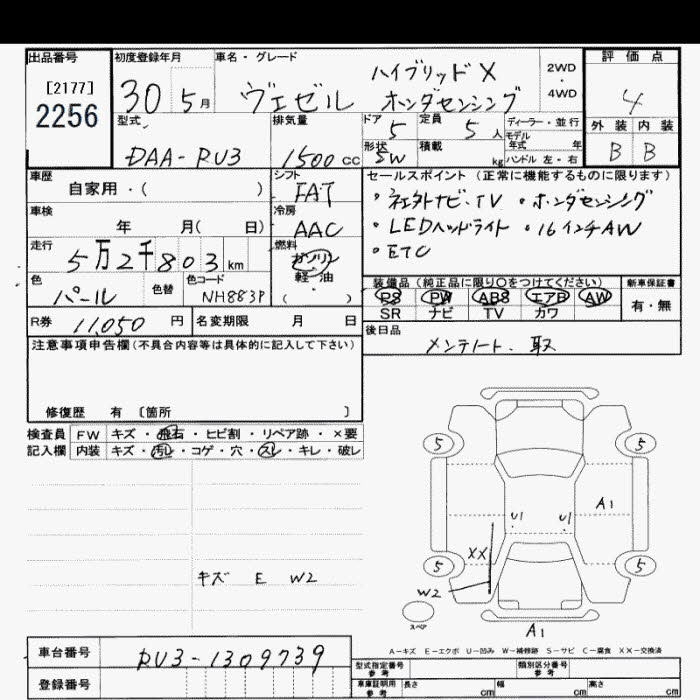 出品番号
[2177]
2256
初度登録年月
30 5月
車名・グレード
ハイブリッドX
ヴェゼル ホンダセンシング
2WD
・
4WD
評価点
4
外装 内装
B B
型式
DAA-RU3
排気量
1500cc
ドア
5
定員
5人
ディーラー・並行
モデル
年式 年
形状
5W
積載
kg
ハンドル 左・右
車歴
自家用・( )
シフト
FAT
車検
年 月( 日)
冷房
AAC
走行
5万2千803km
燃料
ガソリン
軽・油
( )
色
パール
色替
色コード
NH883P
セールスポイント(正常に機能するものに限ります)
・社外ナビ・TV ・ホンダセンシング
・LEDヘッドライト ・16インチAW
・ETC
装備品(純正品に限り〇をつけてください)
PS PW ABS エアB AW
SR ナビ TV カワ
新車保証書
有・無
R券 11,050円
名変期限 月 日
後日品
メンテノート、取
注意事項申告欄(不具合内容等は具体的に記入して下さい)
修復歴 有 〔箇所 〕
検査員 FW キズ・飛石・ヒビ割・リペア跡・×要
記入欄 内装 キズ・汚レ・コゲ・穴・スレ・キレ・破レ
キズ E W2
5 5
A1
U1 U1
XX
5 5
W2
スペア
A1
A-キズ E-エクボ U-凹み W-補修跡 S-サビ C-腐食 XX-交換済
車台番号
RU3-1309739
登録番号
型式指定番号
参考
類別区分番号
参考
車庫証明用
参考
長さ cm
幅 cm
高さ cm